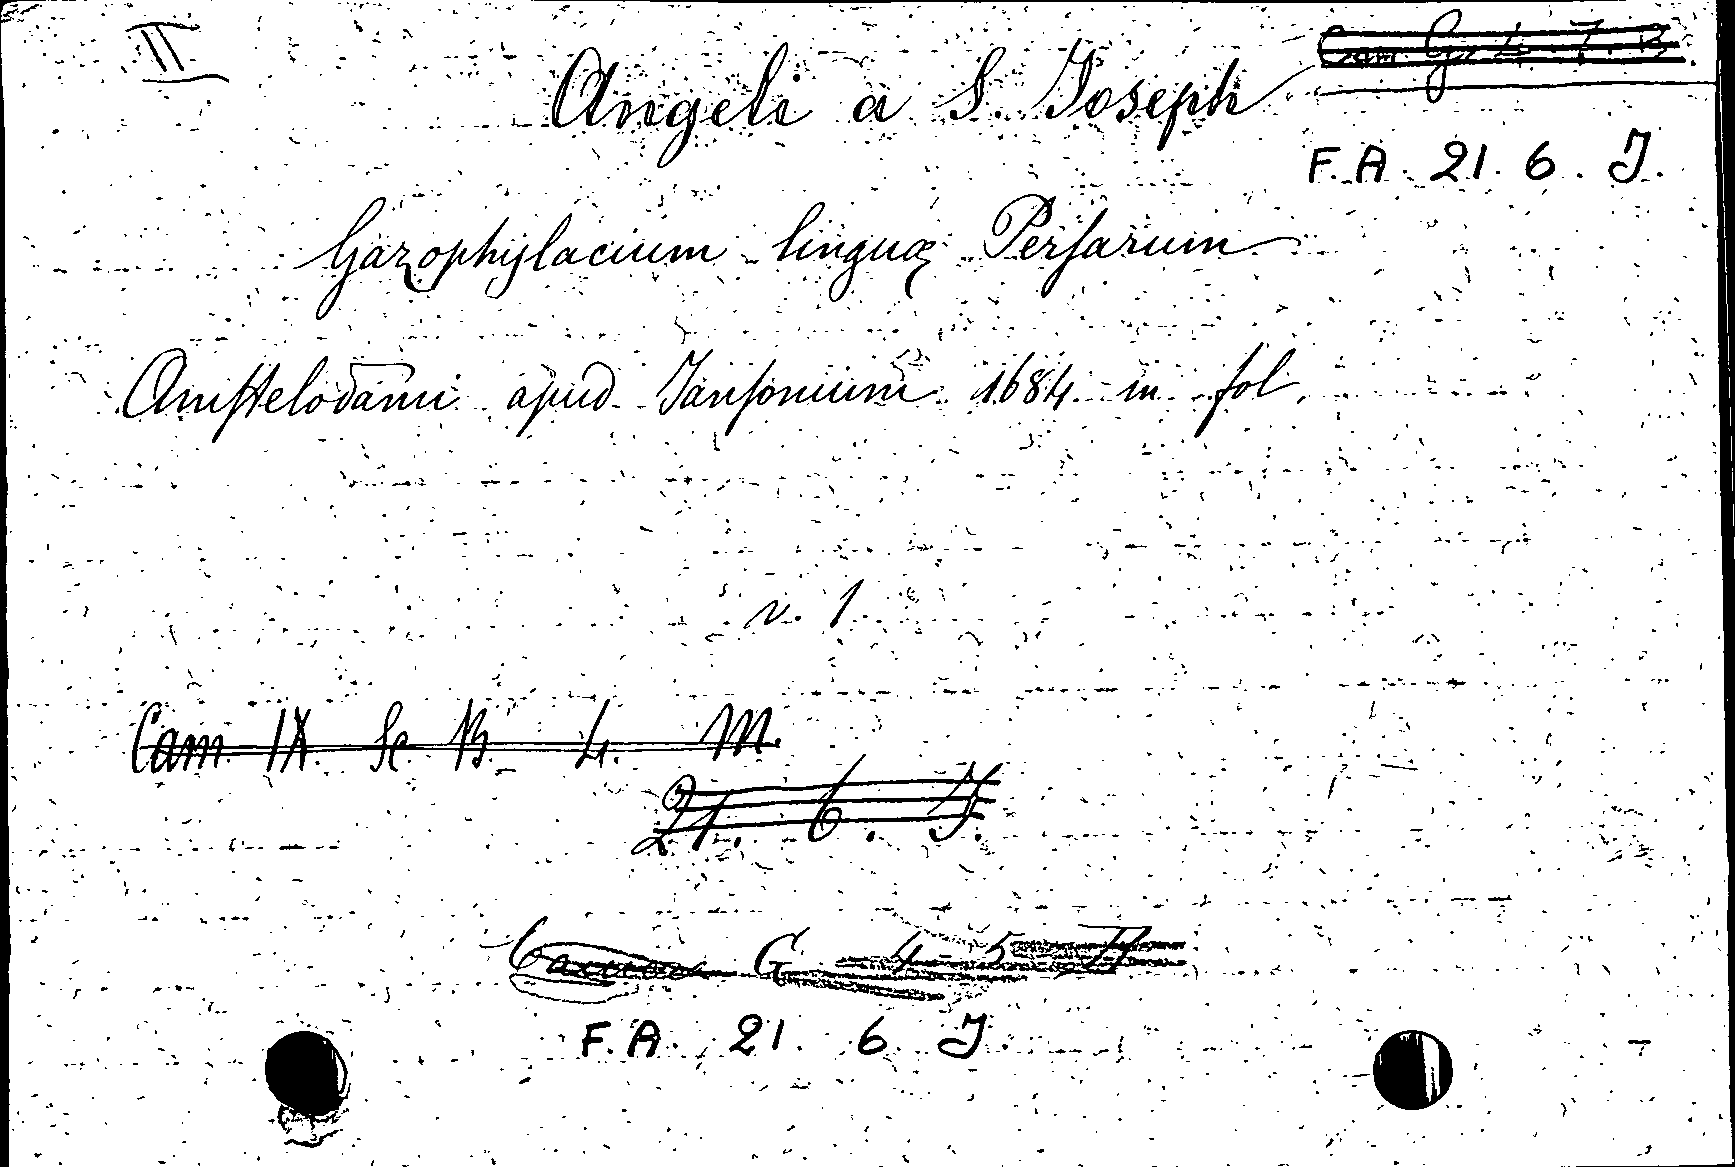 II
Cam G. 4. 7. B.
Angeli a S. Joseph
F. A. 21. 6. J.
Gazophylacium linguæ Persarum
Amstelodami apud Jansonium 1684 in fol.
v. 1
Cam IX. Sc. B. 4. M.
21. 6. J.
Camera G 4 5
F. A. 21. 6. J.